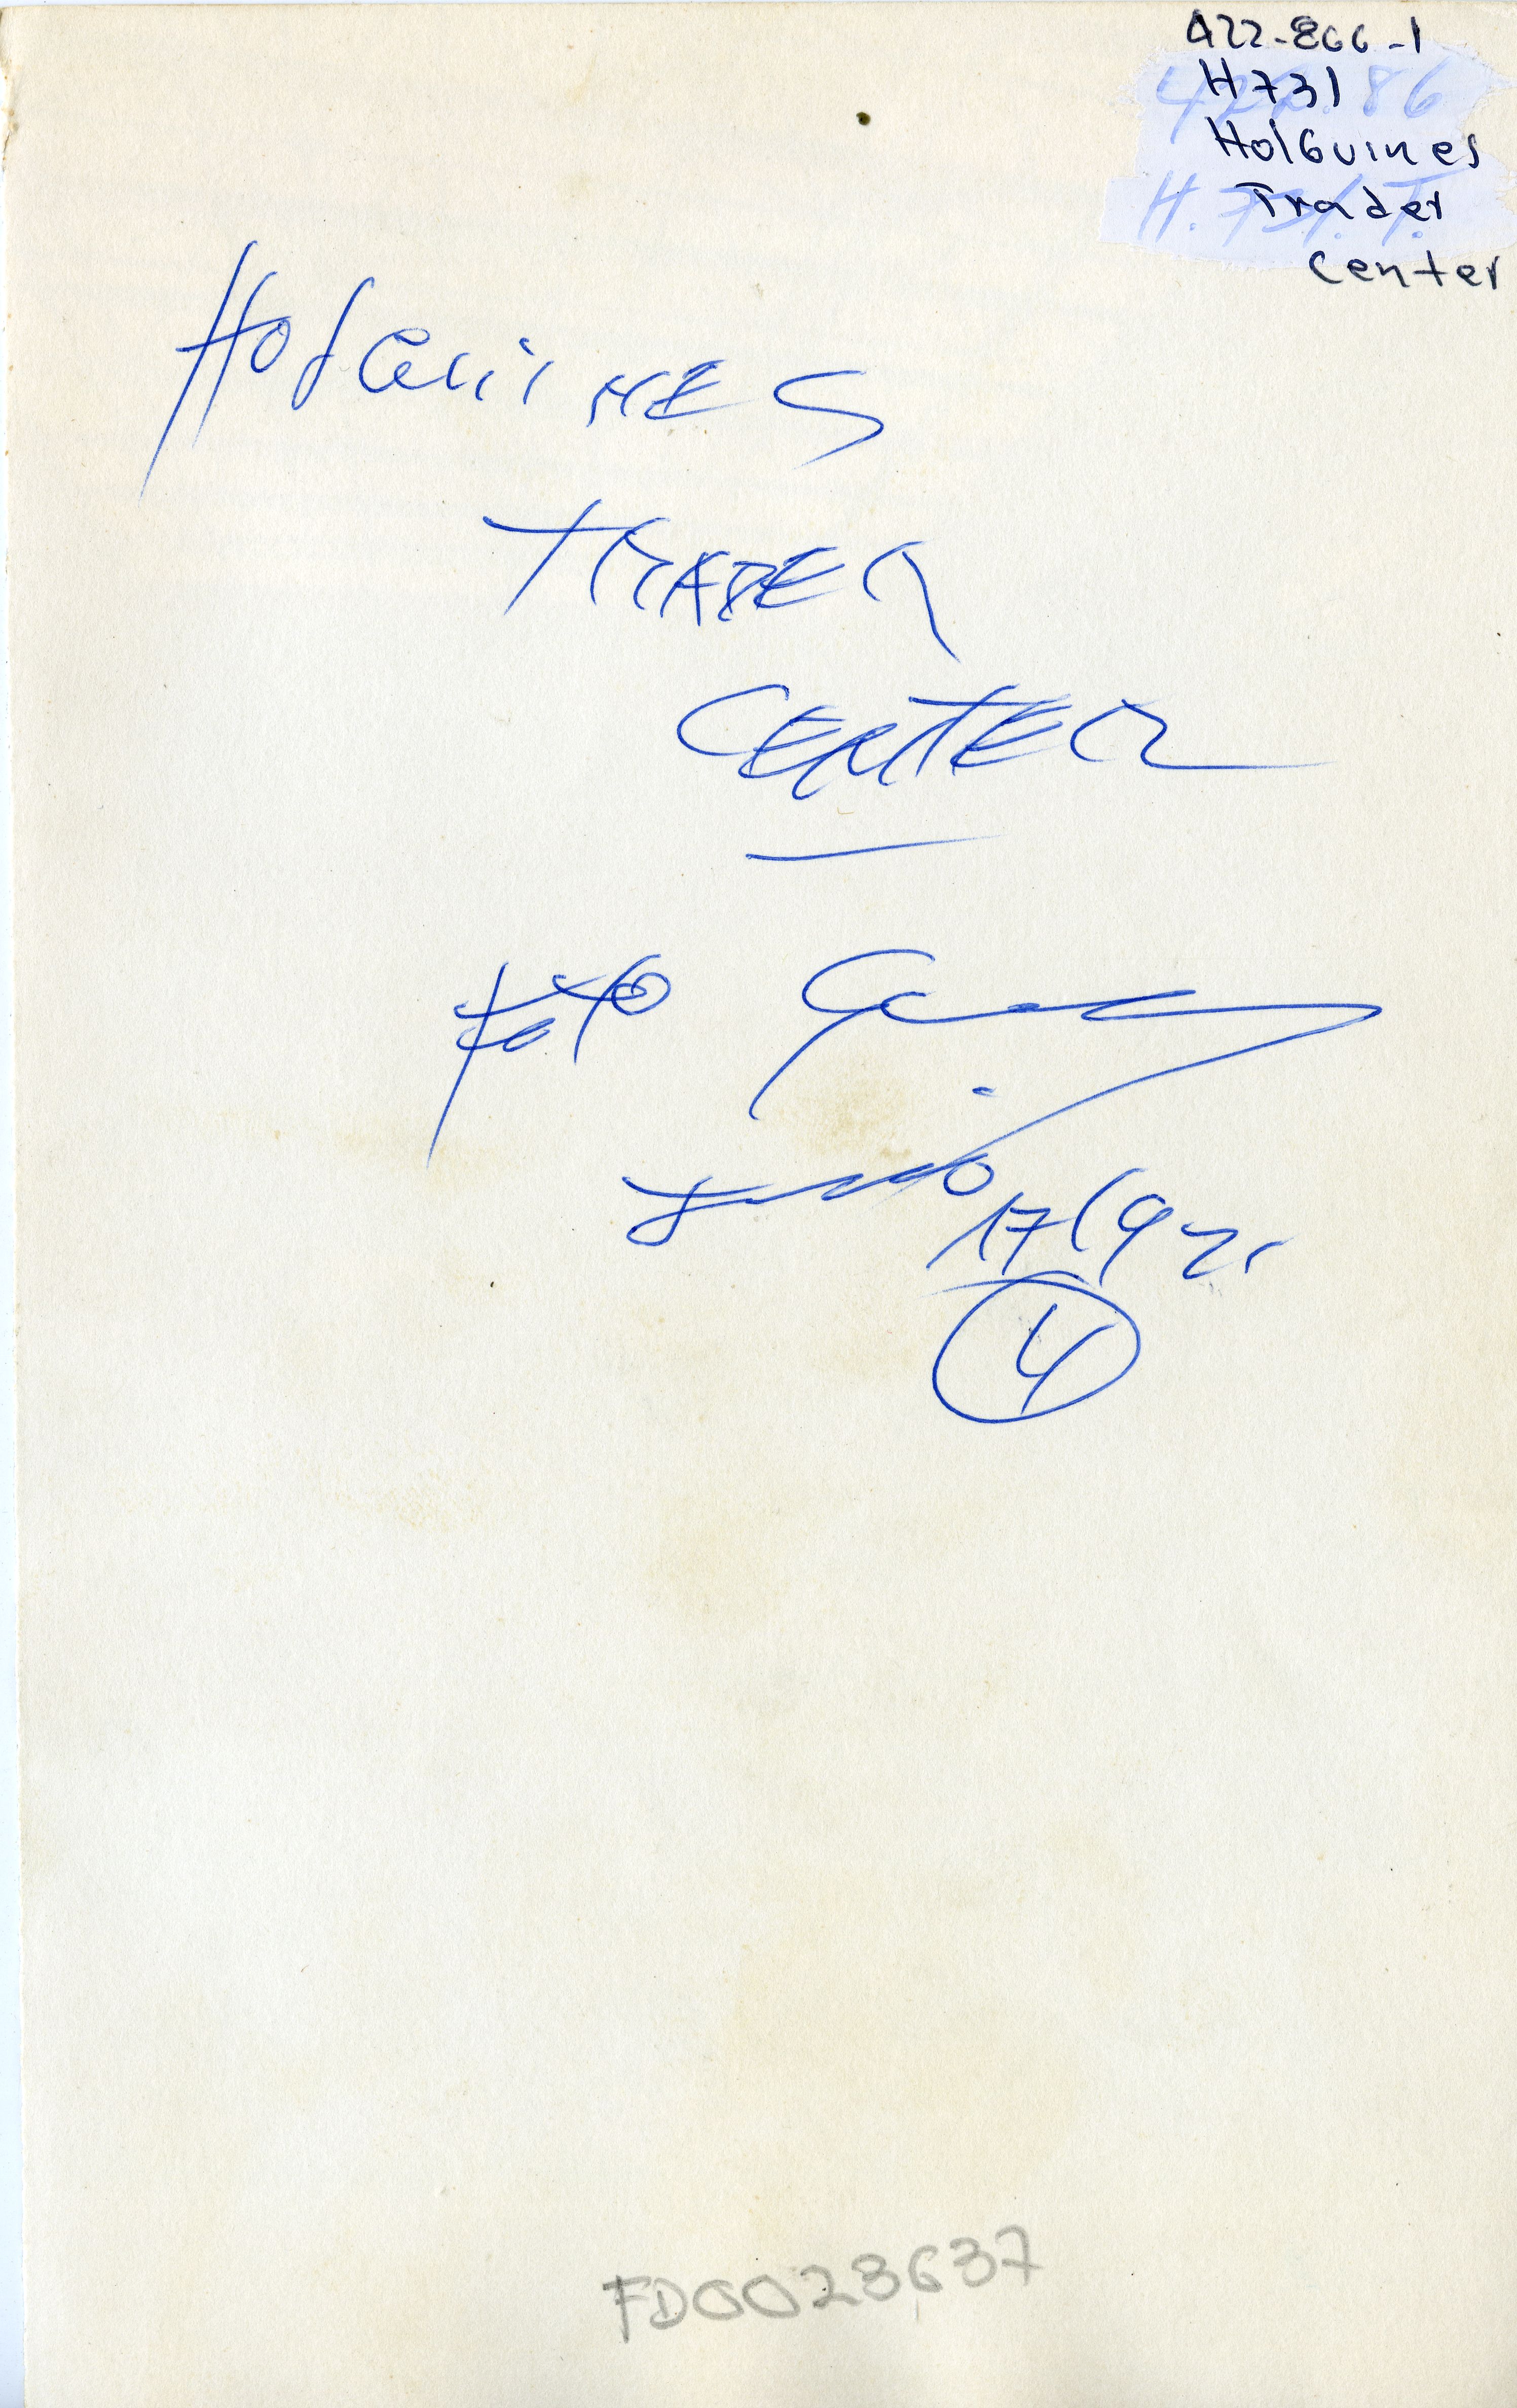 422-866-1
H731
HolGuines
Trader
Center
422.86
H.731.T.
HolGuiNES
TRADER
CENTER
Foto
Junio 17/92
4
FD0023637